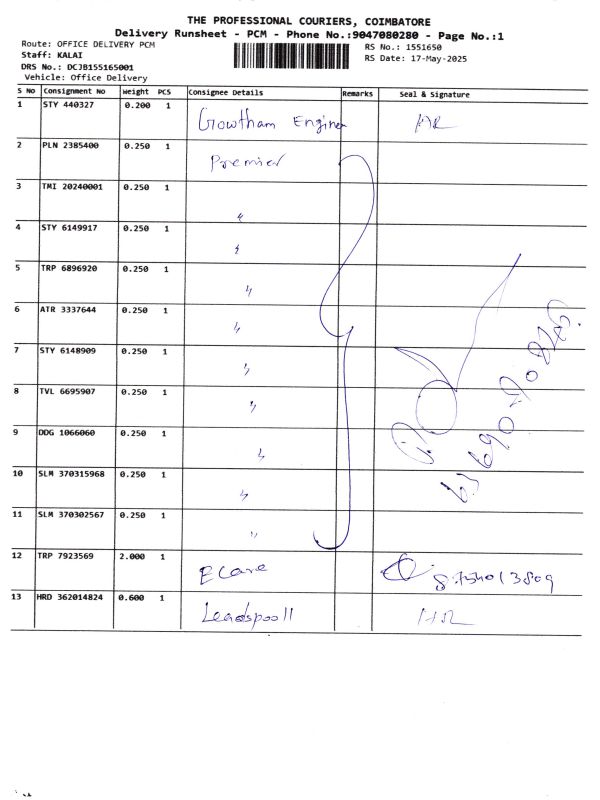 THE PROFESSIONAL COURIERS, COIMBATORE
Delivery Runsheet - PCM - Phone No.:9047080280 - Page No.:1
Route: OFFICE DELIVERY PCM
Staff: KALAI
DRS No.: DCJB155165001
Vehicle: Office Delivery
RS No.: 1551650
RS Date: 17-May-2025
S No Consignment No Weight PCS Consignee Details Remarks Seal & Signature
1 STY 440327 0.200 1 Gowtham Engineer HR
2 PLN 2385400 0.250 1 Premier
3 TMI 20240001 0.250 1 "
4 STY 6149917 0.250 1 "
5 TRP 6896920 0.250 1 "
6 ATR 3337644 0.250 1 "
7 STY 6148909 0.250 1 "
8 TVL 6695907 0.250 1 "
9 DDG 1066060 0.250 1 "
10 SLM 370315968 0.250 1 "
11 SLM 370302567 0.250 1 "
12 TRP 7923569 2.000 1 Ecare
13 HRD 362014824 0.600 1 Leadspooll HR